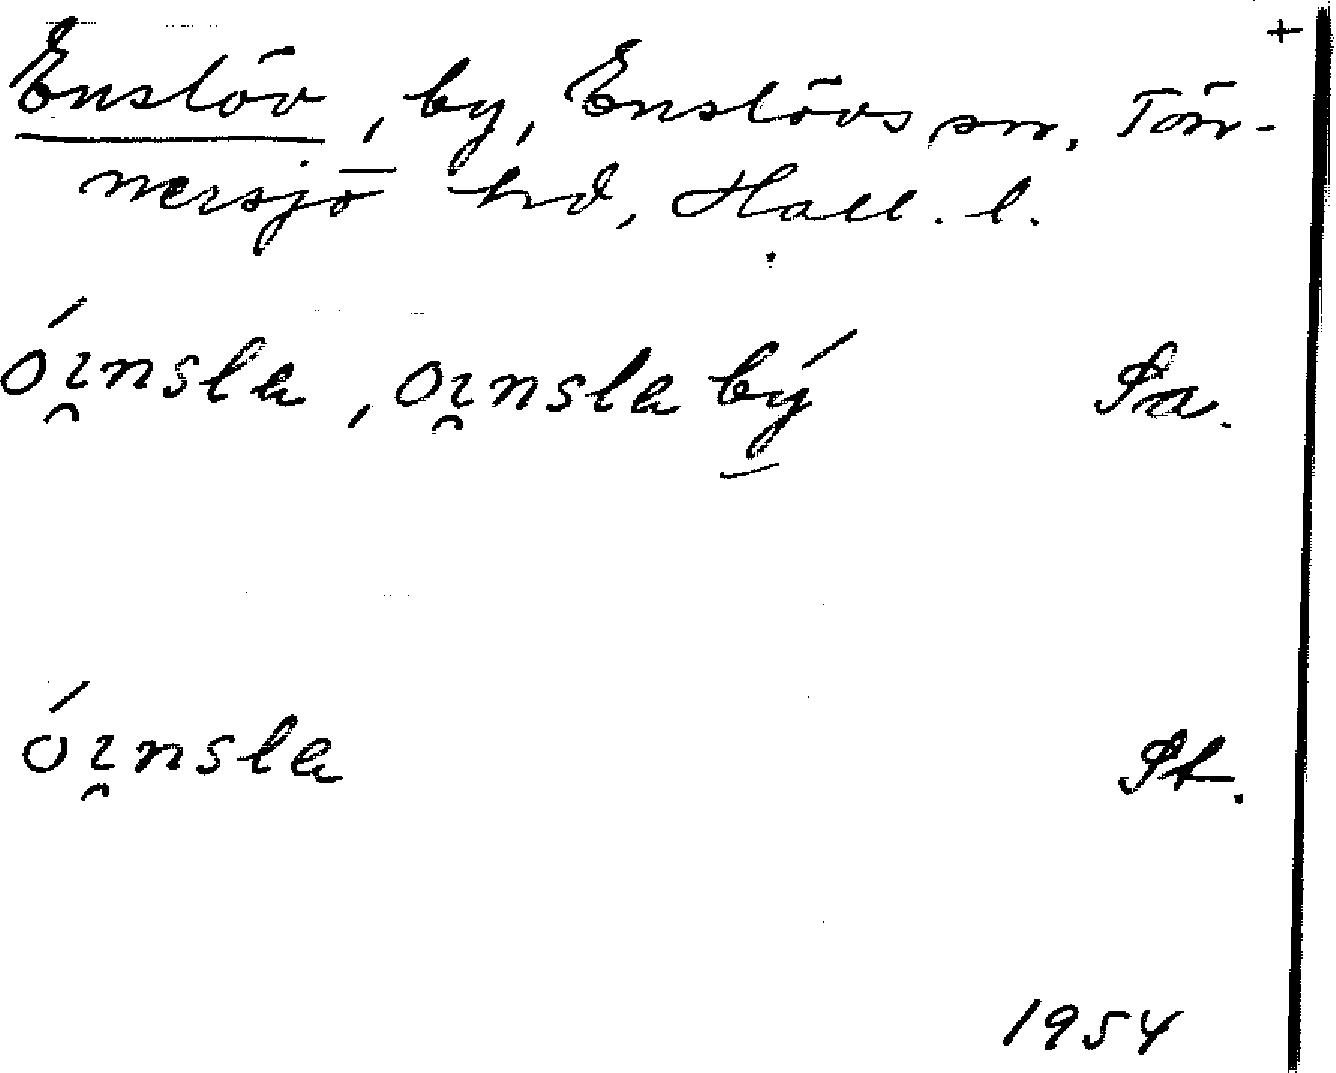 +
Enslöv, by, Enslövs sn, Tön-
nersjö hd, Hall. l.
óı̯nsla, oı̯nsla bý Pa.
óı̯nsla St.
1954